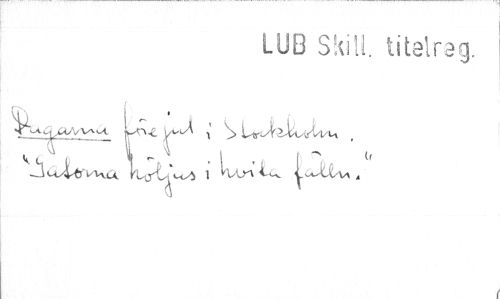 LUB Skill. titelreg.
Dagarna före jul i Stockholm.
"Gatorna höljas i hvita fälln."